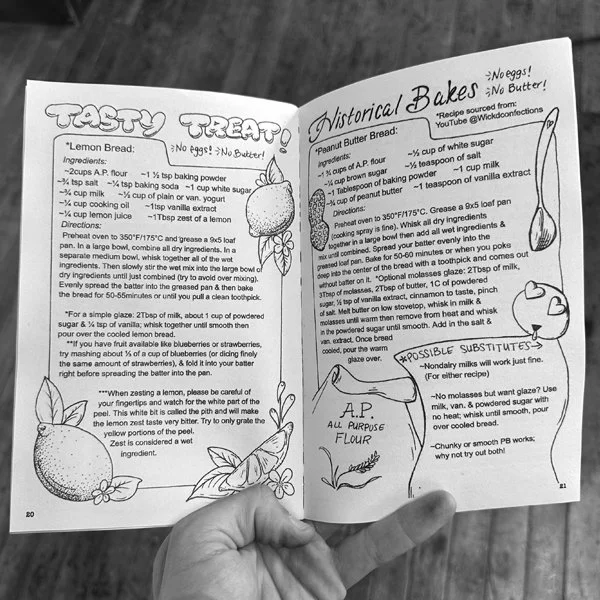 TASTY TREAT!
*Lemon Bread:
No eggs! No Butter!
Ingredients:
~2cups A.P. flour ~1 ½ tsp baking powder
~¾ tsp salt ~¼ tsp baking soda ~1 cup white sugar
~¾ cup milk ~½ cup of plain or van. yogurt
~¼ cup cooking oil ~1tsp vanilla extract
~¼ cup lemon juice ~1Tbsp zest of a lemon
Directions:
Preheat oven to 350°F/175°C and grease a 9x5 loaf
pan. In a large bowl, combine all dry ingredients. In a
separate medium bowl, whisk together all of the wet
ingredients. Then slowly stir the wet mix into the large bowl of
dry ingredients until just combined (try to avoid over mixing).
Evenly spread the batter into the greased pan & then bake
the bread for 50-55minutes or until you pull a clean toothpick.
*For a simple glaze: 2Tbsp of milk, about 1 cup of powdered
sugar & ¼ tsp of vanilla; whisk together until smooth then
pour over the cooled lemon bread.
**If you have fruit available like blueberries or strawberries,
try mashing about ⅓ of a cup of blueberries (or dicing finely
the same amount of strawberries), & fold it into your batter
right before spreading the batter into the pan.
***When zesting a lemon, please be careful of
your fingertips and watch for the white part of the
peel. This white bit is called the pith and will make
the lemon zest taste very bitter. Try to only grate the
yellow portions of the peel.
Zest is considered a wet
ingredient.
20
Historical Bakes
No eggs!
No Butter!
*Recipe sourced from:
YouTube @Wickdconfections
*Peanut Butter Bread:
Ingredients:
~1 ¾ cups of A.P. flour ~½ cup of white sugar
~¼ cup brown sugar ~½ teaspoon of salt
~1 Tablespoon of baking powder ~1 cup milk
~¾ cup of peanut butter ~1 teaspoon of vanilla extract
Directions:
Preheat oven to 350°F/175°C. Grease a 9x5 loaf pan
(cooking spray is fine). Whisk all dry ingredients
together in a large bowl then add all wet ingredients &
mix until combined. Spread your batter evenly into the
greased loaf pan. Bake for 50-60 minutes or when you poke
deep into the center of the bread with a toothpick and comes out
without batter on it. *Optional molasses glaze: 2Tbsp of milk,
3Tbsp of molasses, 2Tbsp of butter, 1C of powdered
sugar, ½ tsp of vanilla extract, cinnamon to taste, pinch
of salt. Melt butter on low stovetop, whisk in milk &
molasses until warm then remove from heat and whisk
in the powdered sugar until smooth. Add in the salt &
van. extract. Once bread
cooled, pour the warm
glaze over.
*POSSIBLE SUBSTITUTES→
~Nondairy milks will work just fine.
(For either recipe)
~No molasses but want glaze? Use
milk, van. & powdered sugar with
no heat; whisk until smooth, pour
over cooled bread.
~Chunky or smooth PB works;
why not try out both!
A.P.
ALL PURPOSE
FLOUR
21